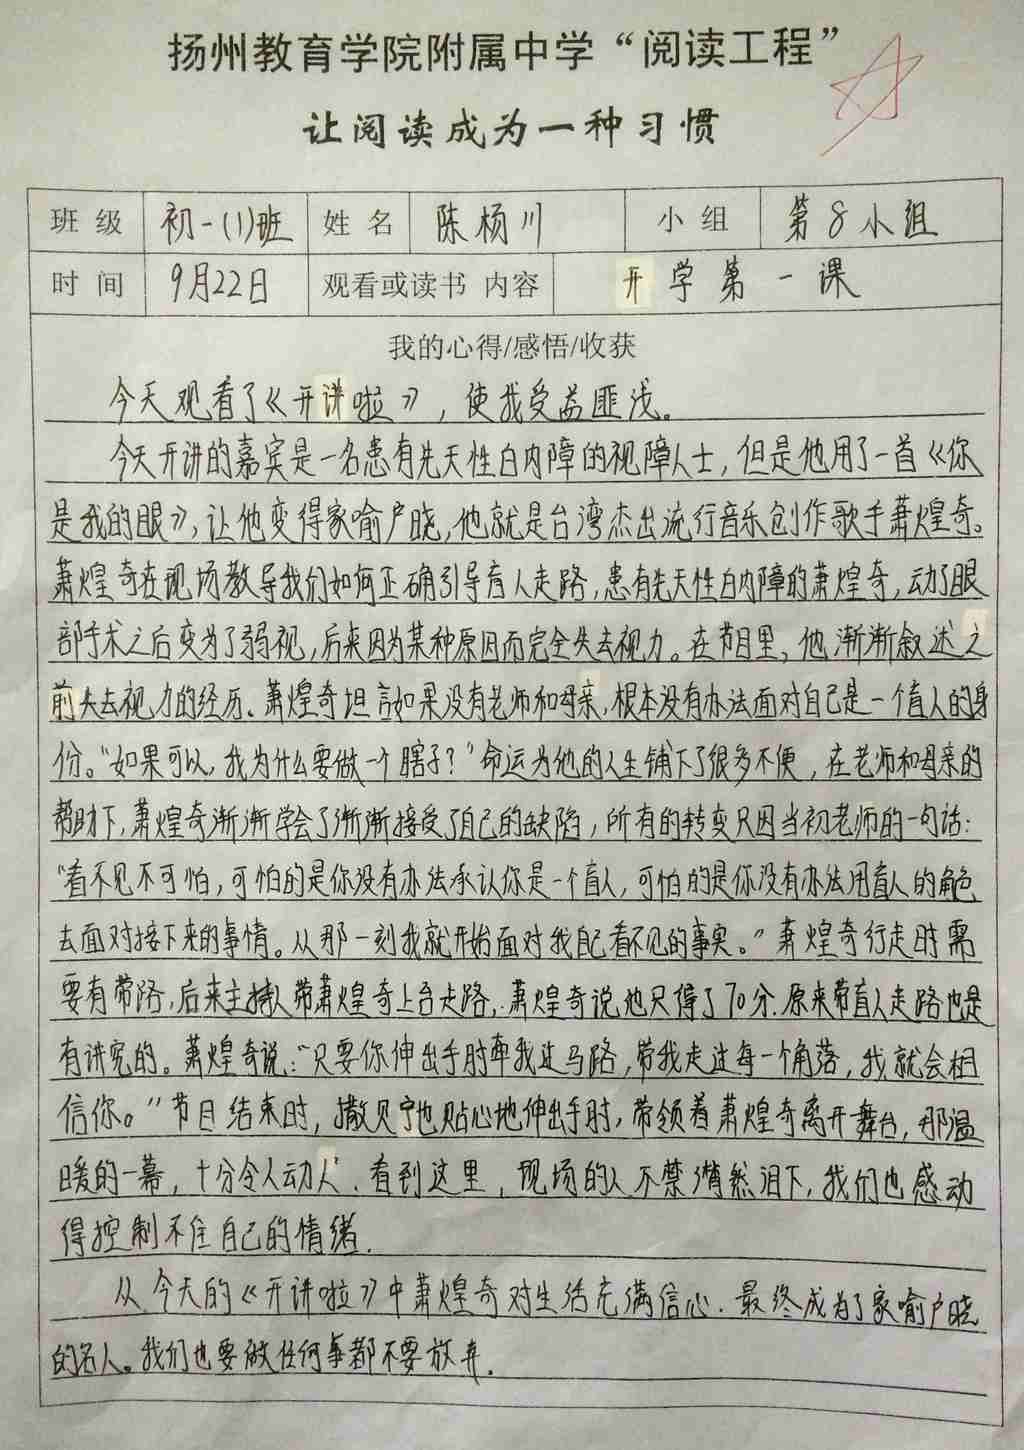 扬州教育学院附属中学“阅读工程”
让阅读成为一种习惯
班 级 初一(1)班 姓 名 陈杨川 小 组 第8小组
时 间 9月22日 观看或读书 内容 开学第一课
我的心得/感悟/收获
今天观看了《开讲啦》，使我受益匪浅。
今天开讲的嘉宾是一名患有先天性白内障的视障人士，但是他用了一首《你
是我的眼》，让他变得家喻户晓，他就是台湾杰出流行音乐创作歌手萧煌奇。
萧煌奇在现场教导我们如何正确引导盲人走路，患有先天性白内障的萧煌奇，动了眼
部手术之后变为了弱视，后来因为某种原因而完全失去视力。在节目里，他渐渐叙述之
前失去视力的经历、萧煌奇坦言如果没有老师和母亲，根本没有办法面对自己是一个盲人的身
份。“如果可以，我为什么要做一个瞎子？”命运为他的人生铺下了很多不便，在老师和母亲的
帮助下，萧煌奇渐渐学会了渐渐接受了自己的缺陷，所有的转变只因当初老师的一句话：
“看不见不可怕，可怕的是你没有办法承认你是一个盲人，可怕的是你没有办法用盲人的角色
去面对接下来的事情。从那一刻我就开始面对我自己看不见的事实。”萧煌奇行走时需
要有带路，后来主持人带萧煌奇上台走路，萧煌奇说他只得了70分.原来带盲人走路也是
有讲究的。萧煌奇说：“只要你伸出手肘牵我过马路，带我走过每一个角落，我就会相
信你。”节目结束时，撒贝宁也贴心地伸出手肘，带领着萧煌奇离开舞台，那温
暖的一幕，十分令人动人.看到这里，现场的人不禁潸然泪下，我们也感动
得控制不住自己的情绪.
从今天的《开讲啦》中萧煌奇对生活充满信心.最终成为了家喻户晓
的名人。我们也要做任何事都不要放弃.